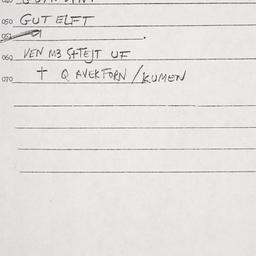 050 GUT ELFT
052
060 VEN M3 S+TEJT UF
070 + Q AVEKTORN / KUMEN